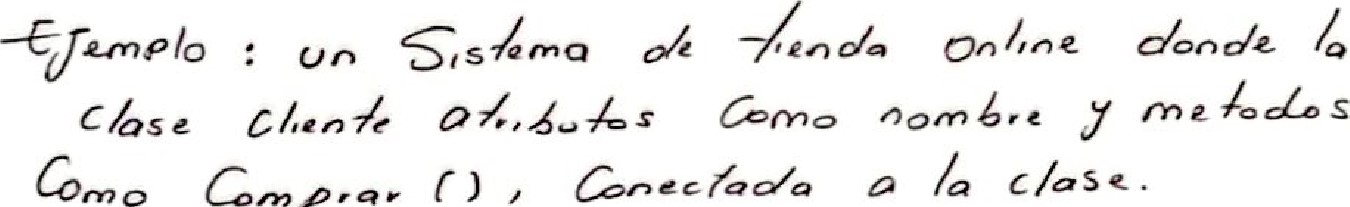 Ejemplo: un Sistema de tienda online donde la
clase cliente atributos como nombre y metodos
Como Comprar (), Conectada a la clase.